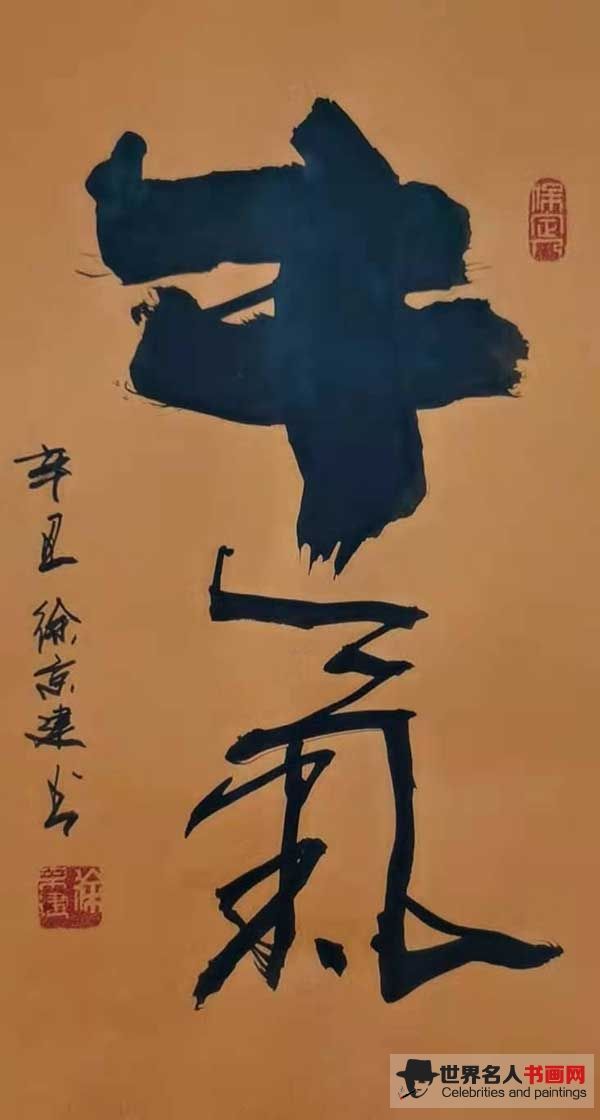 牛氣
辛丑 徐京建书
保定
徐京建
世界名人书画网
Celebrities and paintings